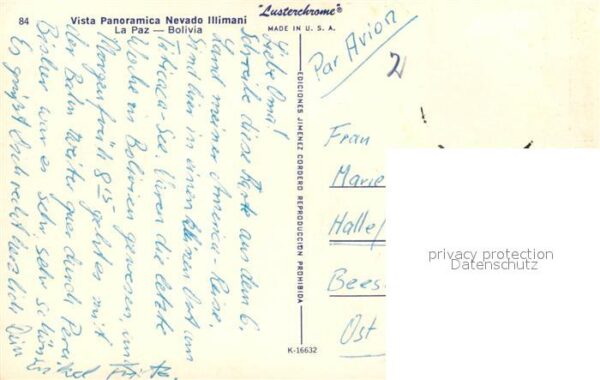 84 Vista Panoramica Nevado Illimani
La Paz — Bolivia
"Lusterchrome"®
MADE IN U. S. A.
EDICIONES JIMENEZ CORDERO REPRODUCCION PROHIBIDA
K-16632
Liebe Oma!
Schreibe diese Karte aus dem 6.
Land meiner America-Reise.
Sind hier in einem kleinen Ort am
Titicaca-See. Waren die letzte
Woche in Bolivien gewesen, und
Morgen früh 8 15 geht es mit
der Bahn weiter quer durch Peru.
Bisher war es sehr sehr schön.
Es grüßt Dich recht herzlich Dein
Par Avion
2
Frau
Marie
Halle/
Bees
Ost
privacy protection
Datenschutz